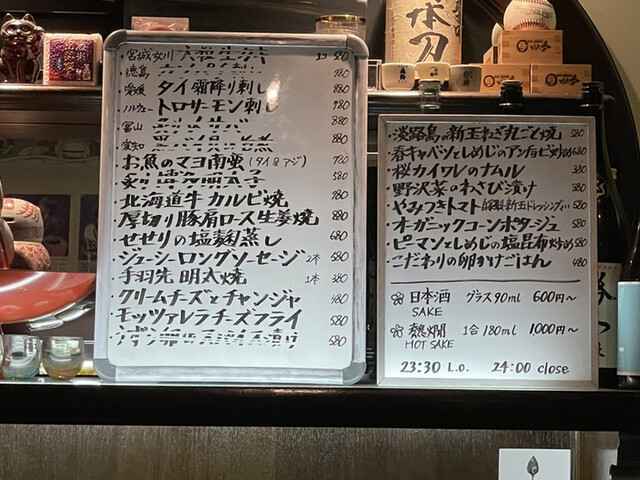 宮城女川 大粒生ガキ 1コ 580
徳島 980
愛媛 タイ霜降り刺し 880
ノルウェー トロサーモン刺し 980
富山 880
愛知 880
お魚のマヨ南蛮(タイ&アジ) 780
炙り博多明太子 580
北海道牛カルビ焼 980
厚切り豚肩ロース生姜焼 880
せせりの塩麹蒸し 680
ジューシーロングソーセージ 2本 580
手羽先明太焼 1本 380
クリームチーズとチャンジャ 480
モッツァレラチーズフライ 580
580
・淡路島の新玉ねぎ丸ごと焼 580
・春キャベツとしめじのアンチョビ炒め 680
・桜カイワレのナムル 380
・野沢菜のわさび漬け 380
・やみつきトマト 580
・オーガニックコーンポタージュ 580
・ピーマンとしめじの塩昆布炒め 580
・こだわりの卵かけごはん 480
日本酒 グラス90ml 600円~
SAKE
熱燗 1合180ml 1000円~
HOT SAKE
23:30 L.o. 24:00 close